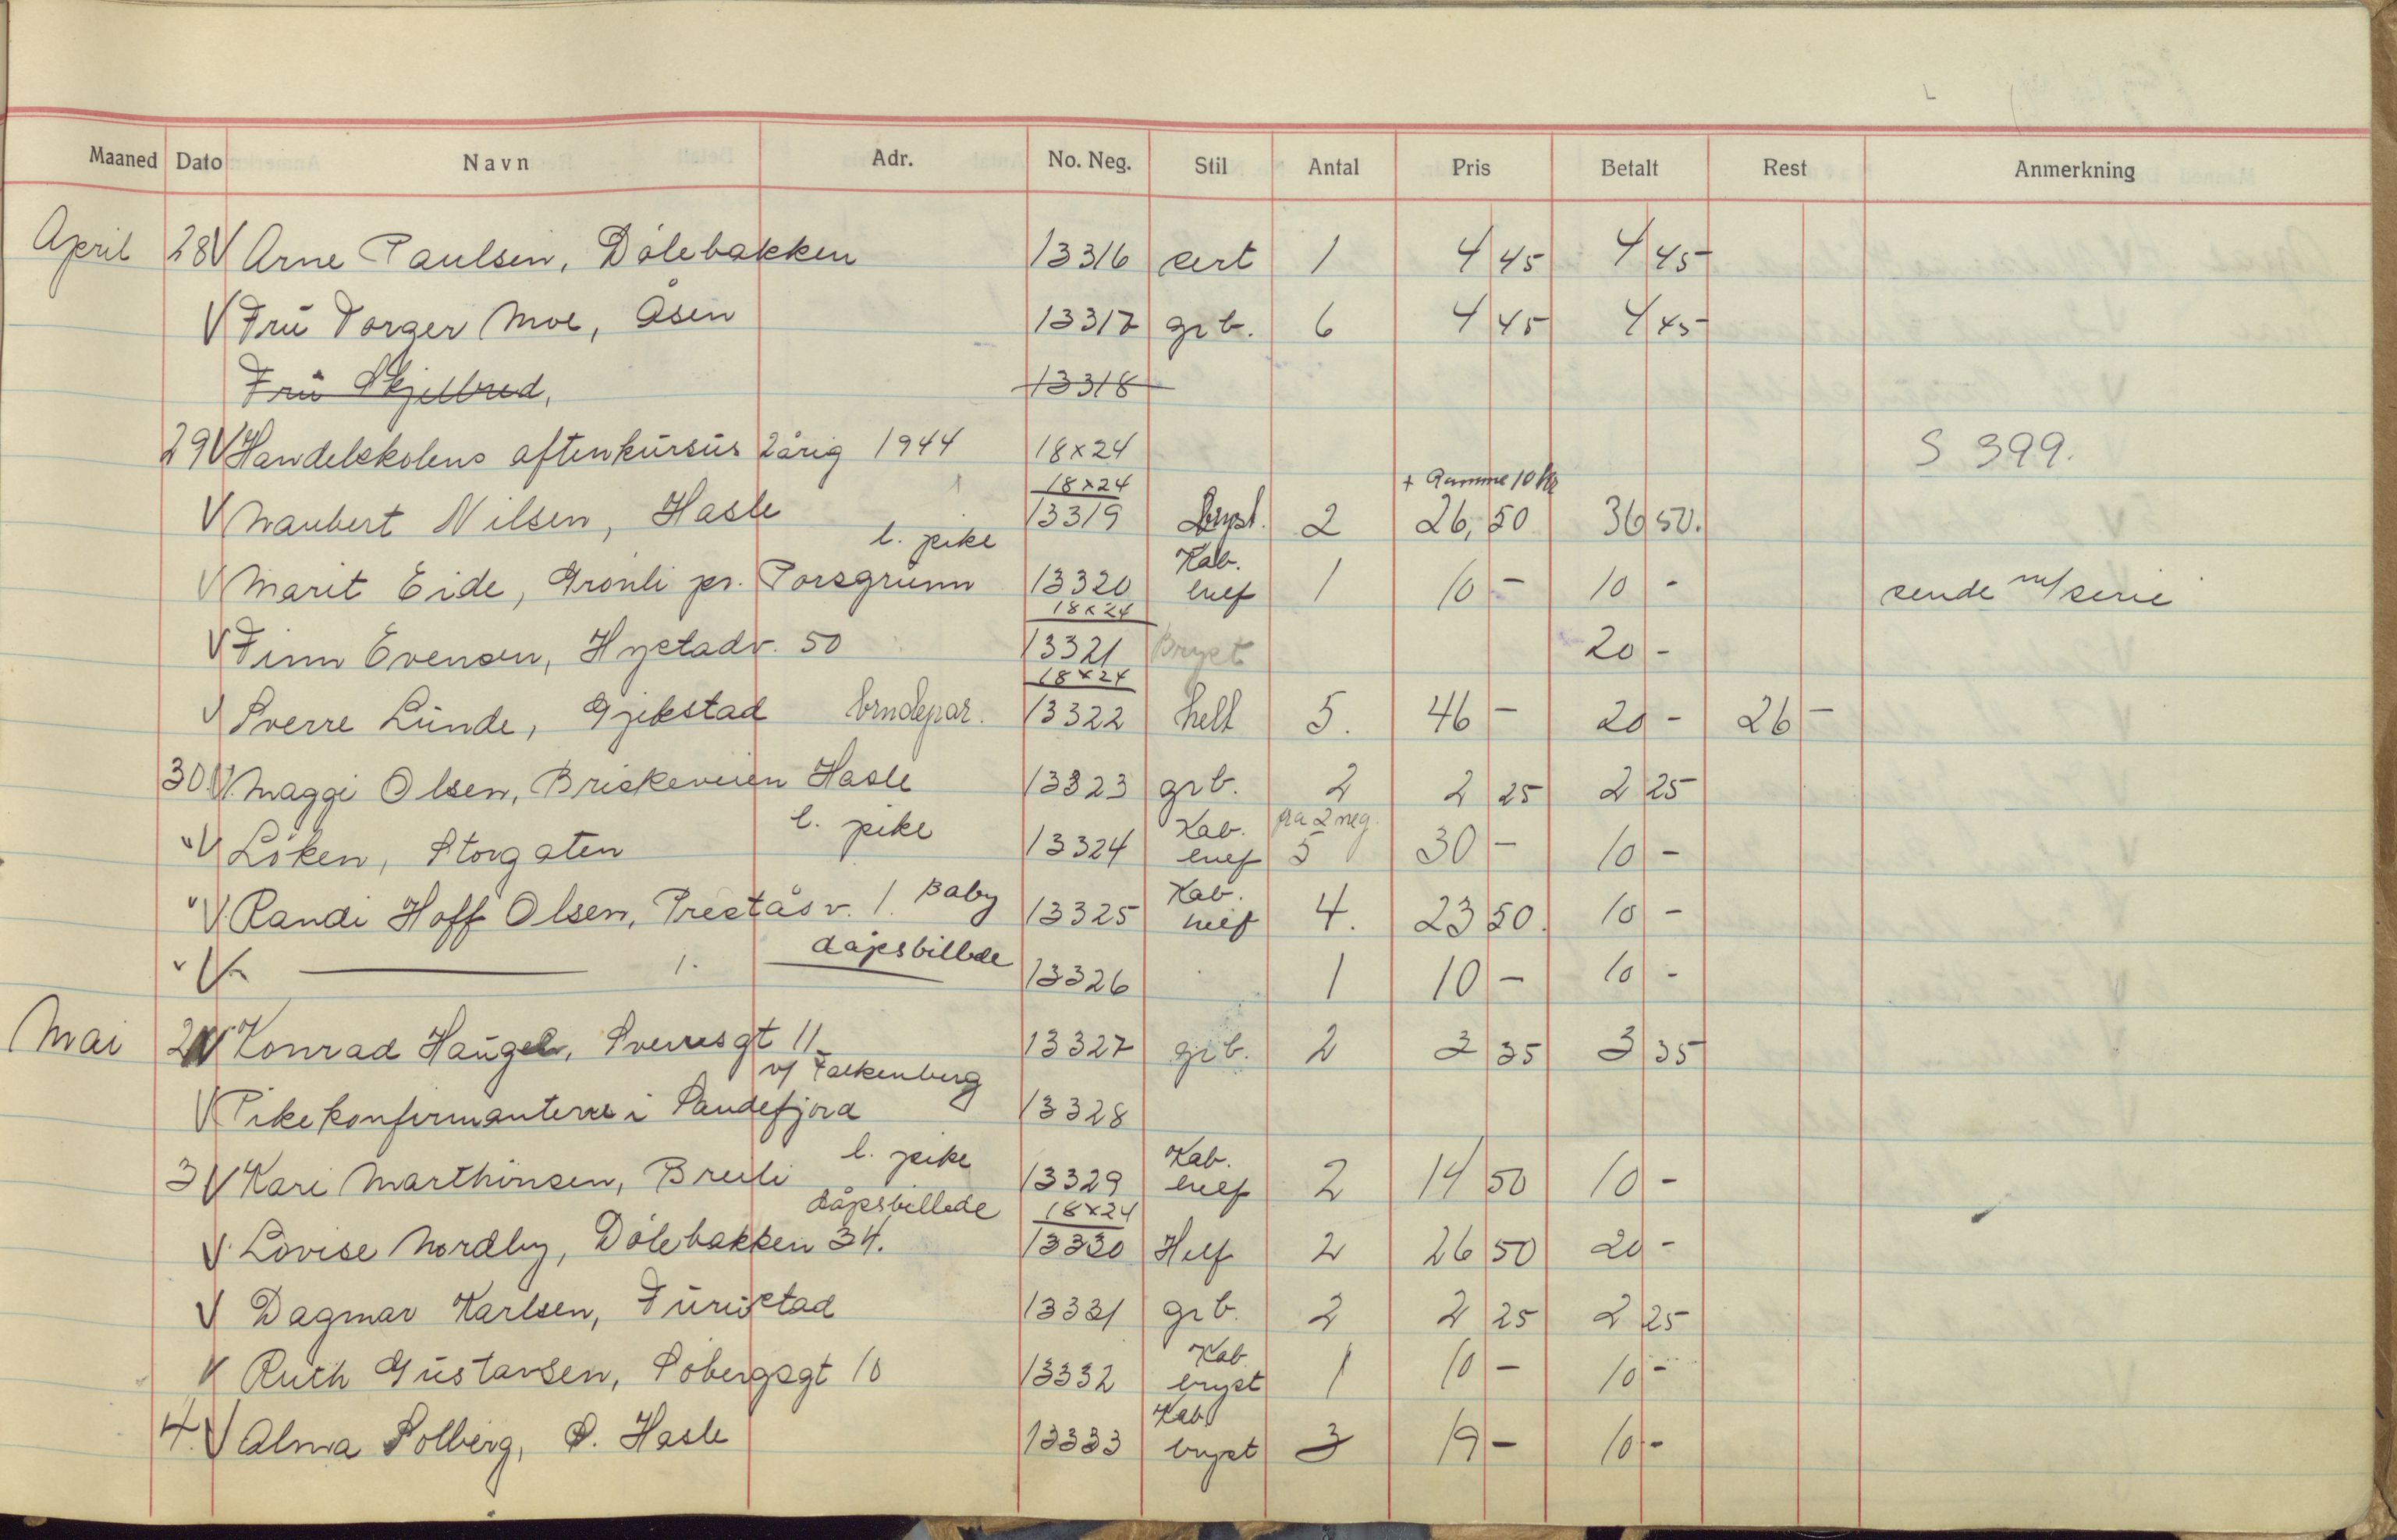 Maaned Dato Navn Adr. No. Neg. Stil Antal Pris Betalt Rest Anmerkning
April 28 V Arne Paulsen, Dölebakken 13316 cert 1 4 45 4 45
V Frü Torger Moe, Åsen 13317 grb. 6 4 45 4 45
Frü Skjelbred, 13318
29 V Handelskolens aftenkürsüs 2årig 1944 18x24 S 399.
18x24 + Ramme 10 kr
V Maubert Nilsen, Hasle 13319 Bryst. 2 26,50 36 50.
l. pike Kab.
V Marit Eide, Grönli pr. Porsgrünn 13320 1 10 - 10 - sende m/serie
18x24
V Finn Evensen, Hystadv. 50 13321 Bryst 20 -
18x24
V Sverre Lünde, Gjekstad brudepar. 13322 helt 5. 46 - 20 - 26 -
30. V Maggi Olsen, Briskeveien Hasle 13323 grb. 2 2 25 2 25
l. pike Kab. fra 2 neg.
" V Löken, Storgaten 13324 5 30 - 10 -
Baby Kab.
" V Randi Hoff Olsen, Preståsv. 1. 13325 4. 23 50. 10 -
dåpsbillede
" V 13326 1 10 - 10 -
Mai 2 V Konrad Haügel, Sverresgt 11 13327 grb. 2 3 35 3 35
v/ Falkenberg
V Pikekonfirmantene i Sandefjord 13328
l. pike Kab.
3 V Kari Marthinsen, Breili 13329 2 14 50 10 -
dåpsbillede 18x24
V Lovise Nordby, Dölebakken 34. 13330 2 26 50 20 -
V Dagmar Karlsen, Fürüstad 13331 grb. 2 2 25 2 25
Kab
V Ruth Güstavsen, Söbergsgt 10 13332 bryst 1 10 - 10 -
Kab
4. V Alma Solberg, S. Hasle 13333 bryst 3 19 - 10 -